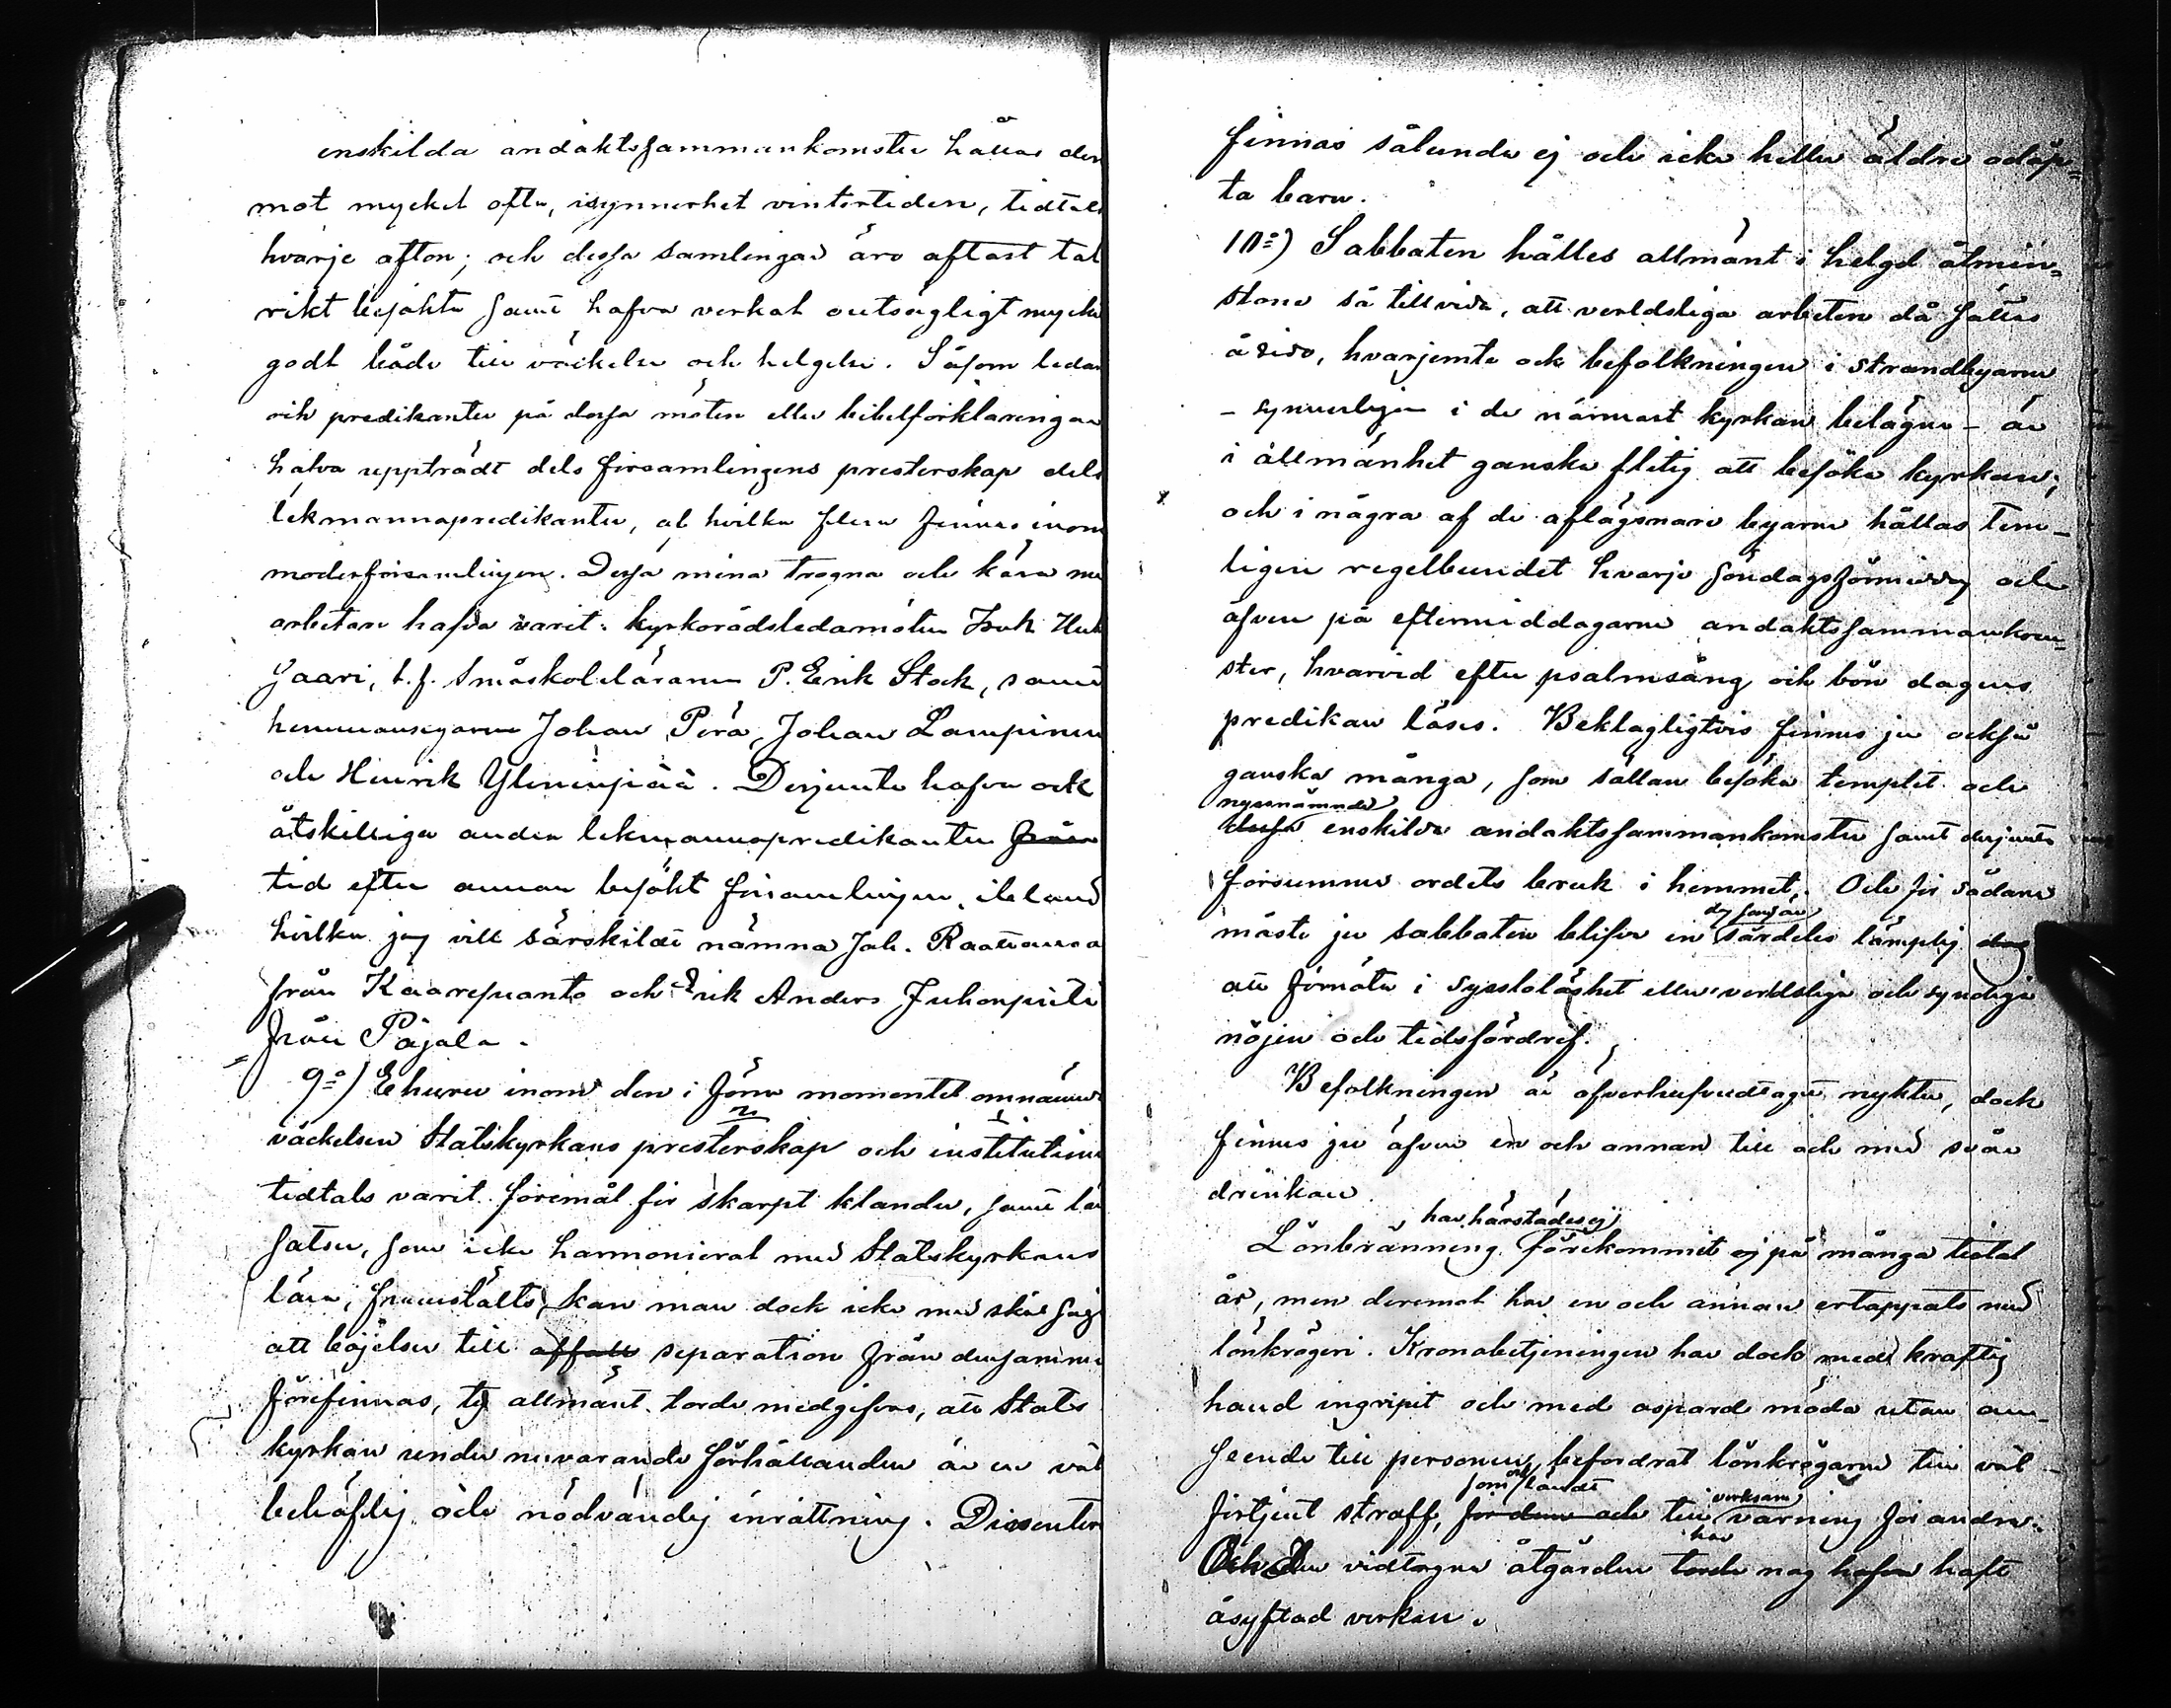 enskilda andaktssammankomster hållas der
mot mycket ofta, isynnerhet vintertiden, tidtals
hvarje afton; och dessa samlingar äro oftast tal
rikt besökta samt hafva verkat outsägligt mycket
godt både till väckelse och helgelse. Såsom ledare
och predikanter på dessa möten eller bibelförklaringar
hafva uppträdt dels församlingens presterskap dels
lekmannapredikanter, af hvilka flera finnas inom
moderförsamlingen. Dessa mina trogna och kära med
arbetare hafva varit: kyrkorådsledamoten Isak
t. f. småskoleläraren P. Erik Stock, samt
hemmansegarne Johan Perä, Johan Lampinen
och Henrik Ylinenpää. Derjemte hafva ock
åtskilliga andra lekmannapredikanter från
tid efter annan besökt församlingen, ibland
hvilka jag vill särskildt nämna Joh. Raattamaa
från Kaarepuanto och Erik Anders Juhonpieti
från Pajala.
9:o) Ehuru inom den i förra momentet omnämnda
väckelsen Statskyrkans presterskap och institutioner
tidtals varit föremål för skarpt klander, samt lär
satser, som icke harmonierat med Statskyrkans
lära, framstälts, kan man dock icke med skäl säga
att böjelser till affall separation från densamma
förefinnas, ty allmänt torde medgifvas, att Stats
kyrkan under nuvarande förhållanden är en väl
behöflig och nödvändig inrättning. Dissenter
finnas sålunda ej och icke heller äldre odöp=
ta barn.
10:o) Sabbaten hålles allmänt i helgd åtmin=
stone så tillvida, att verldsliga arbeten då sättas
å sido, hvarjemte ock befolkningen i strandbyarne
- synnerligen i de närmast kyrkan belägna - är
i allmänhet ganska flitig att besöka kyrkan;
och i några af de aflägsnare byarne hållas tem-
ligen regelbundet hvarje söndagsförmiddag och
äfven på eftermiddagarne andaktssammankom=
ster, hvarvid efter psalmsång och bön dagens
predikan läses. Beklagligtvis finnes ju också
ganska många, som sällan besöka templet och
nyssnämnda
dessa enskilda andaktssammankomster samt derjemte
försumma ordets bruk i hemmet. Och för sådane
dag såsom är
måste ju sabbaten blifva en särdeles lämplig dag
att förnöta i sysslolöshet eller verldsliga och syndiga
nöjen och tidsfördrif.
Befolkningen är öfverhufvudtaget nykter, dock
finnes ju äfven en och annan till och med svår
drinkare.
har härstädes ej
Lönbränning förekommit ej på många tiotal
år, men deremot har en och annan ertappats med
lönkrögeri. Kronobetjeningen har dock med kraftig
hand ingripit och med ospard möda utan an-
seende till personen befordrat lönkrögarne till väl-
som ock ländt verksam
förtjent straff, för dem och till varning för andra.
har
Och De vidtagna åtgärder torde nog hafva haft
åsyftad verkan.